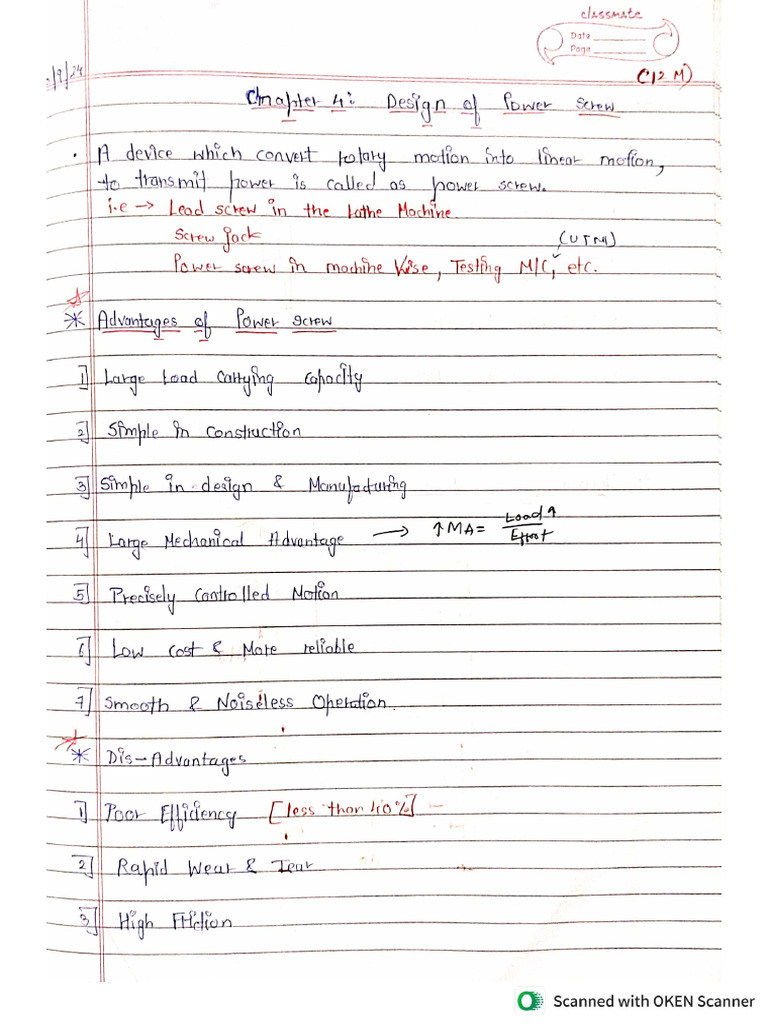 classmate
Date
Page
/9/24
(12 M)
Chapter 4: Design of Power Screw
• A device which convert rotary motion into linear motion,
to transmit power is called as power screw.
i.e → Lead screw in the Lathe Machine
Screw jack
(UTM)
Power screw in machine Vise, Testing M/C, etc.
* Advantages of Power screw
1] Large Load Carrying Capacity
2] Simple in Construction
3] Simple in design & Manufacturing
4] Large Mechanical Advantage → ↑MA = Load↑ / Effort
5] Precisely Controlled Motion
6] Low cost & More reliable
7] Smooth & Noiseless Operation.
* Dis-Advantages
1] Poor Efficiency [less than 40%] -
2] Rapid Wear & Tear
3] High Friction
Scanned with OKEN Scanner